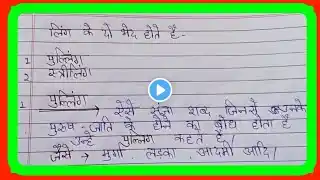 लिंग के दो भेद होते है -
1 पुल्लिंग
2 स्त्रीलिंग
1 पुल्लिंग → ऐसे संज्ञा शब्द जिनसे उनके
पुरुष जाति के होने का बोध होता है
उन्हें पुल्लिंग कहते हैं
जैसे → मुर्गा, लड़का, आदमी आदि।